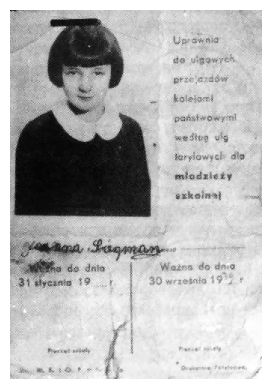 Uprawnia
do ulgowych
przejazdów
kolejami
państwowymi
według ulg
taryfowych dla
młodzieży
szkolnej
Joanna Sagman
Ważna do dnia
31 stycznia 19 r
Ważna do dnia
30 września 19 r
Pieczęć szkoły
Pieczęć szkoły